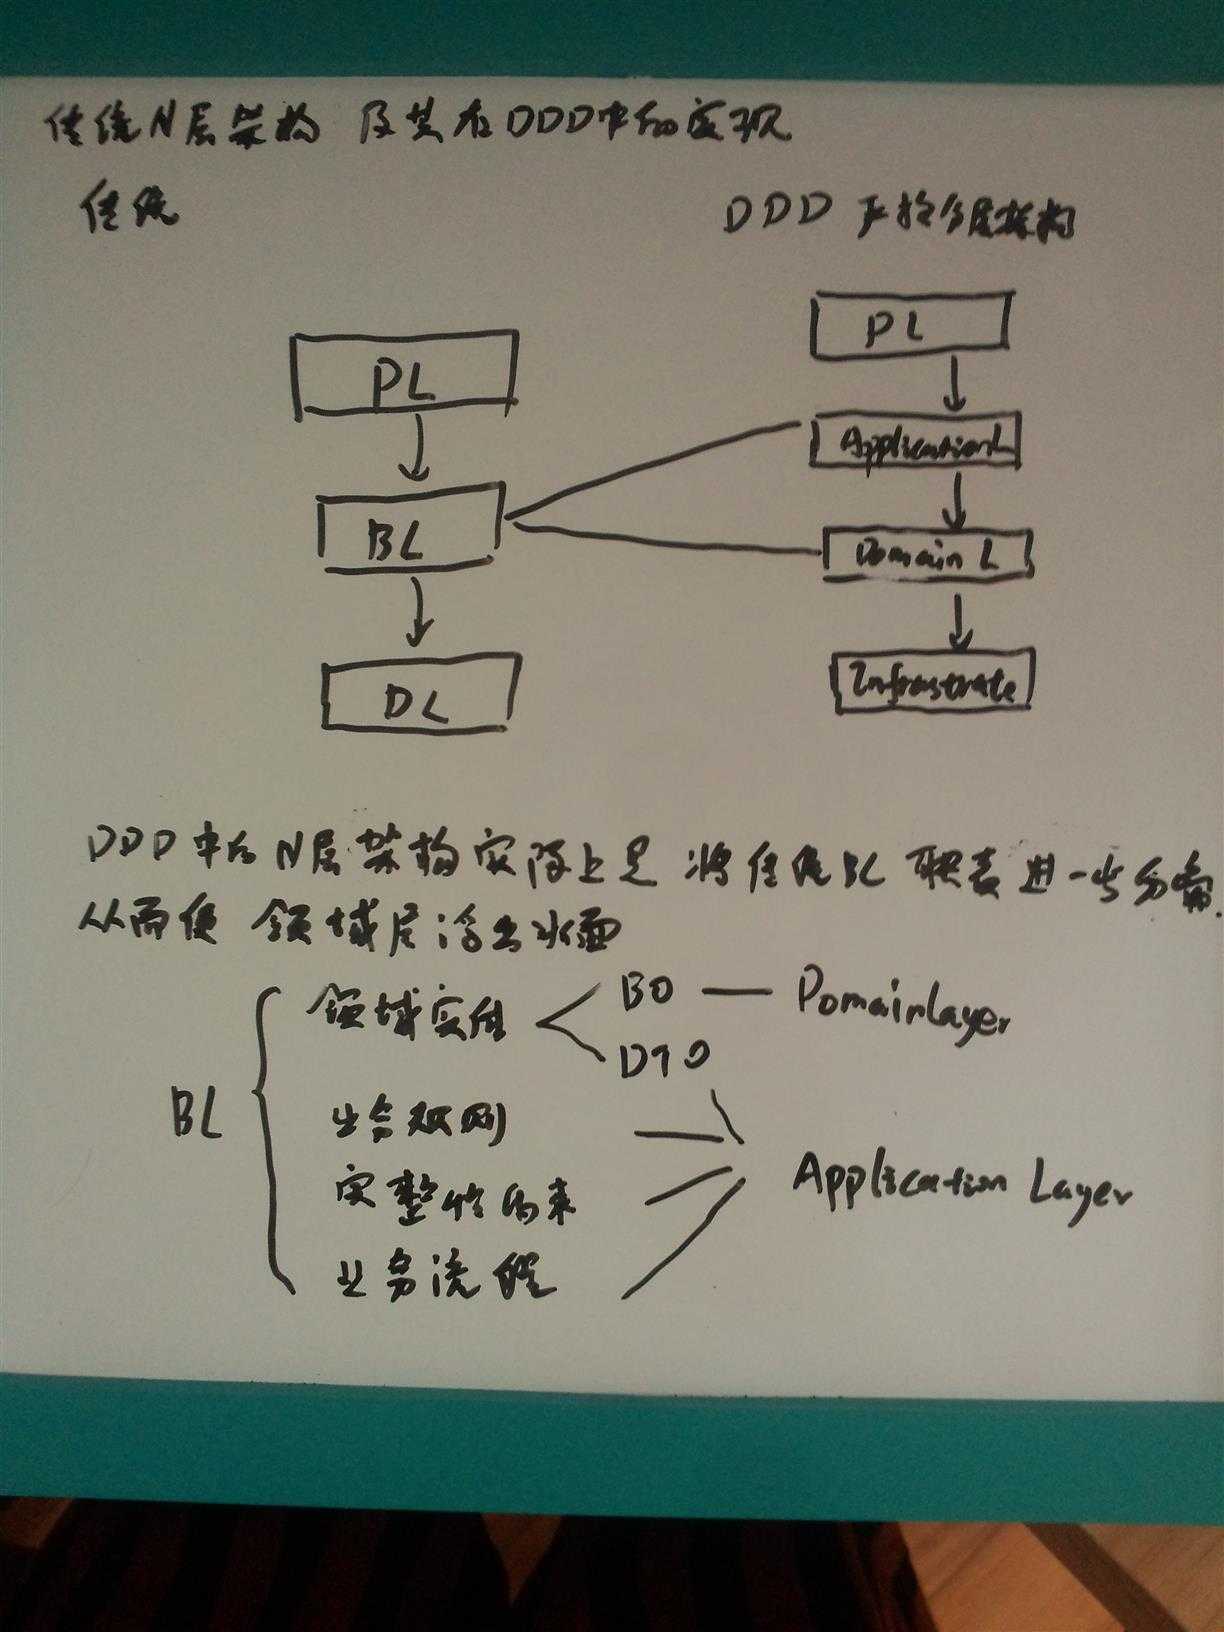 传统N层架构 及其在DDD中的实现
传统
DDD 严格分层架构
PL
BL
DL
PL
ApplicationL
Domain L
Infrastrate
DDD中的N层架构实际上是 将传统BL 职责进一步分离.
从而使 领域层浮出水面
BL
领域实体
BO
DTO
DomainLayer
业务规则
完整性约束
业务流程
Application Layer